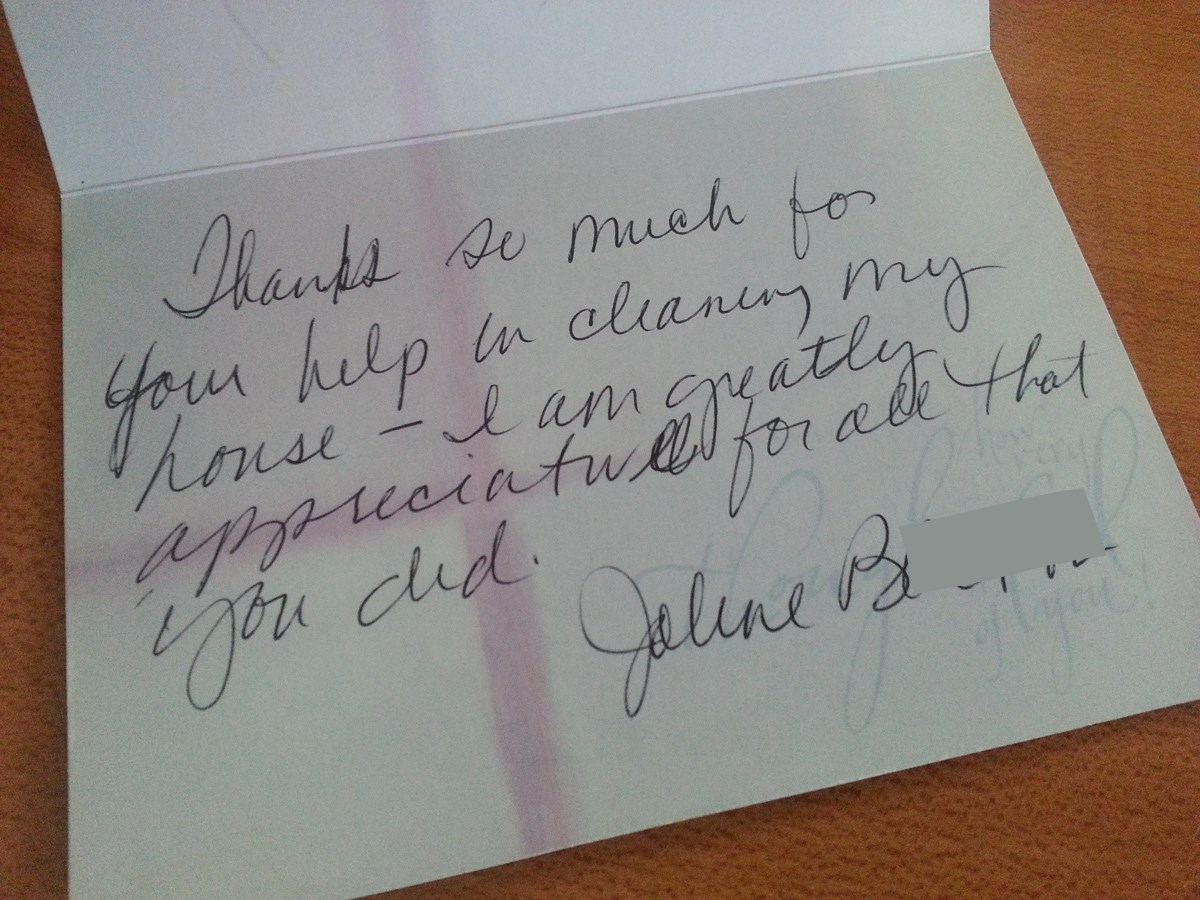 Thanks so much for
your help in cleaning my
house – I am greatly
appreciative for all that
you did.
Jolene